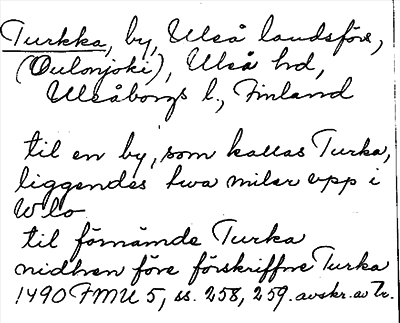 Turkka, by, Uleå landsförs,
(Oulonjoki), Uleå hd,
Uleåborgs l., Finland
til en by, som kallas Turka,
liggendes twa miler vpp i
Wlo
til förnämde Turka
nidhen före förskriffne Turka
1490 FMU 5, ss. 258, 259. avskr. av Tr.